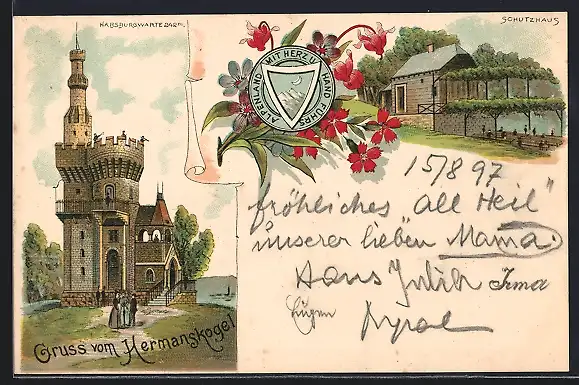 HABSBURGWARTE 542 m.
SCHUTZHAUS
MIT HERZ U. HAND FÜHRS ALPENLAND
15/8 97
fröhliches "All Heil"
unserer lieben Mama.
Hans Irma
Eugen
Gruss vom Hermanskogel